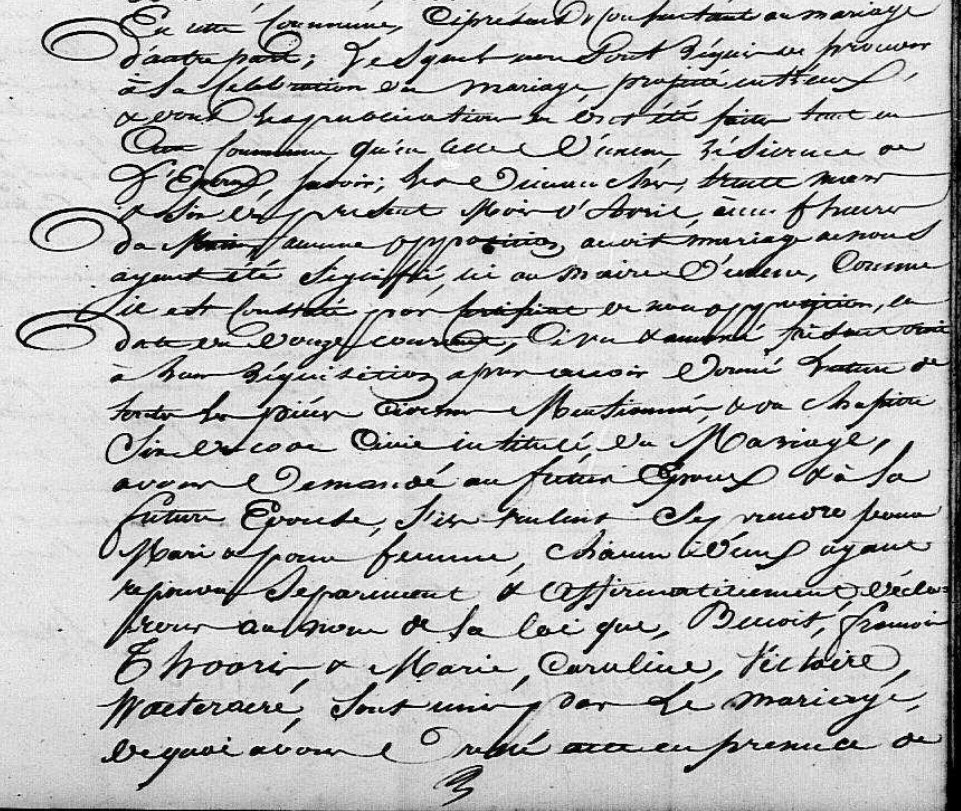 En cette Commune, Ci présent & consentant au mariage
d'autre part; Lesquels nous ont Requis de procéder
à la Célébration du mariage projetté entr'eux,
& dont les publications en ont été faites tant en
Cette Commune qu'en celle d' résidence de
L'Epoux, Savoir; les Dimanches, trente mars
& Six du présent Mois d'Avril, à heures
du Matin, aucune opposition, audit mariage ne nous
ayant été Signifié, ni au maire d', Comme
il est Constaté par Certificat de non opposition, en
date du Douze courant, faisant droit
à leur Réquisition, après avoir Donné Lecture de
toutes les pièces Cidessus Mentionnés, & du Chapitre
Six du code Civil intitulé, du Mariage,
avons Demandé au futur Epoux & à la
future Epouse, S'ils veulent Se prendre pour
Mari & pour femme, chacun d'eux ayant
répondu Séparément & Affirmativement, Décla-
rons au nom de la loi que, Benoit, François
Thooris, & Marie, Caroline, Victoire,
Waeteraere, Sont unis par Le mariage,
de quoi avons Dressé acte en présence de